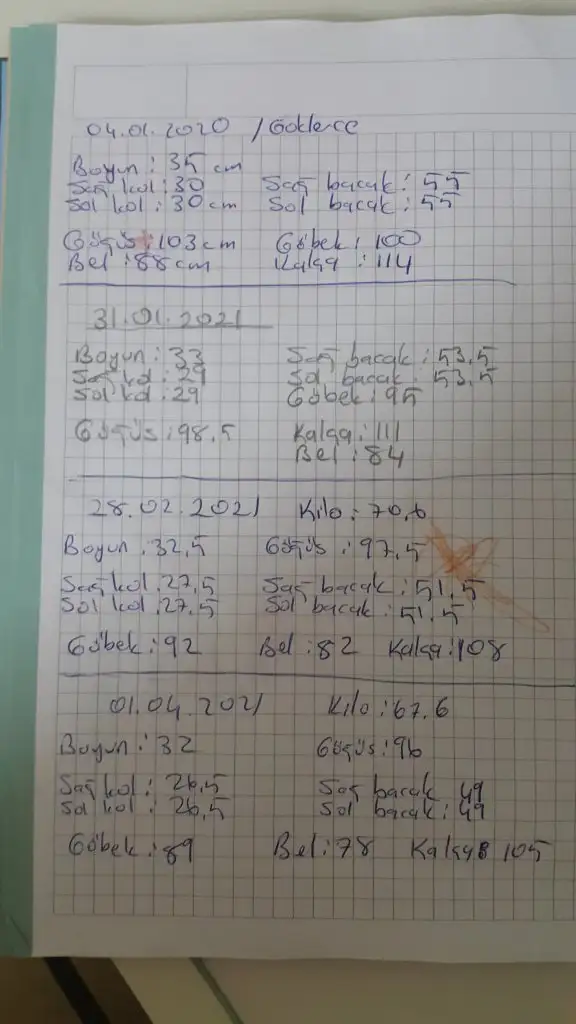 04.01.2020 / Göklece
Boyun : 35 cm
Sağ kol : 30 Sağ bacak : 55
Sol kol : 30 cm Sol bacak : 55
Göğüs : 103 cm Göbek : 100
Bel : 88 cm Kalça : 114
31.01.2021
Boyun : 33 Sağ bacak : 53,5
Sağ kol : 29 Sol bacak : 53,5
Sol kol : 29 Göbek : 95
Göğüs : 98,5 Kalça : 111
Bel : 84
28.02.2021 Kilo : 70,6
Boyun : 32,5 Göğüs : 97,5
Sağ kol : 27,5 Sağ bacak : 51,5
Sol kol : 27,5 Sol bacak : 51,5
Göbek : 92 Bel : 82 Kalça : 108
01.04.2021 Kilo : 67.6
Boyun : 32 Göğüs : 96
Sağ kol : 26,5 Sağ bacak : 49
Sol kol : 26,5 Sol bacak : 49
Göbek : 89 Bel : 78 Kalça : 105